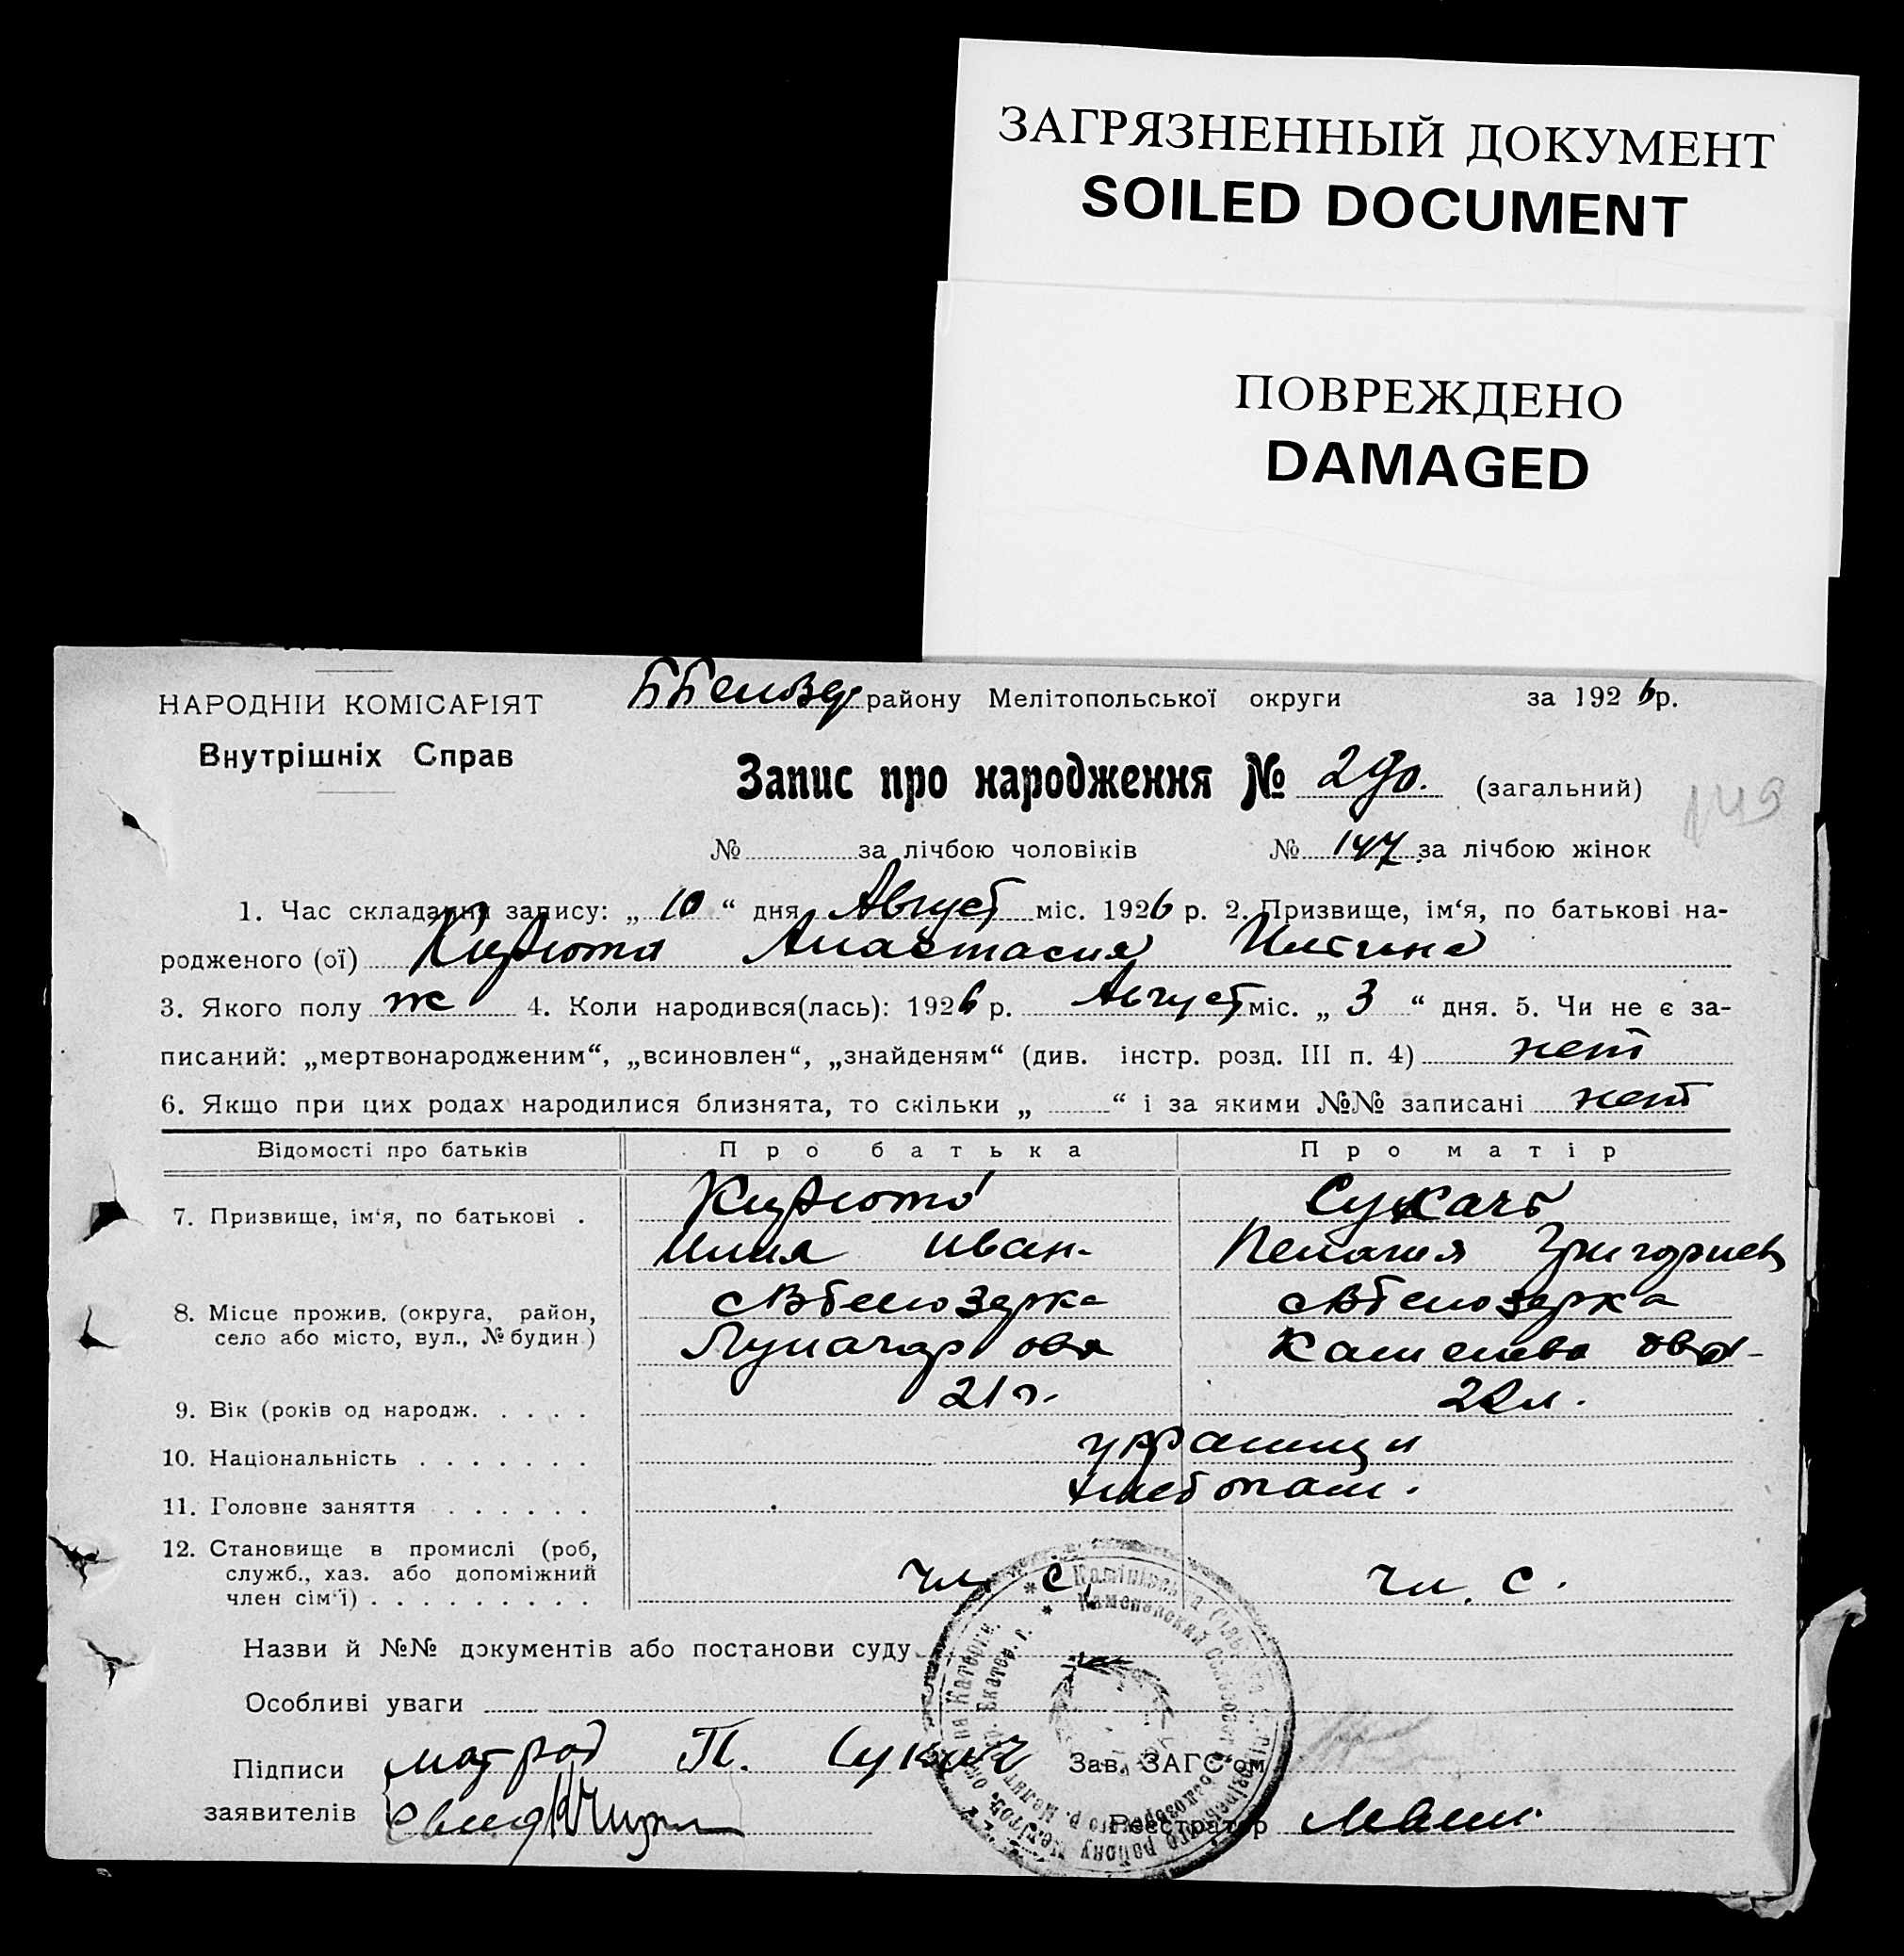 ЗАГРЯЗНЕННЫЙ ДОКУМЕНТ
SOILED DOCUMENT
ПОВРЕЖДЕНО
DAMAGED
НАРОДНІЙ КОМІСАРІЯТ
Внутрішніх Справ
району Мелітопольської округи за 1926 р.
Запис про народження № (загальний)
149
№ за лічбою чоловіків № 147 за лічбою жінок
1. Час складання запису: „ 10 “ дня Август міс. 1926 р. 2. Призвище, ім‘я, по батькові на-
родженого (ої) Анастасия
3. Якого полу ж 4. Коли народився(лась): 1926 р. Август міс. „ 3 “ дня. 5. Чи не є за-
писаний: „мертвонародженим“, „всиновлен“, „знайденям“ (див. інстр. розд. III п. 4) нет
6. Якщо при цих родах народилися близнята, то скільки „ “ і за якими №№ записані нет
Відомості про батьків Про батька Про матір
7. Призвище, ім‘я, по батькові . Сукачь
Илия Иван- Пелагия Григориев
8. Місце прожив. (округа, район,
село або місто, вул., № будин.)
9. Вік (років од народж. . . . . 21 г. 22 л.
10. Національність . . . . . . . украинци
11. Головне заняття . . . . . . хлебопаш.
12. Становище в промислі (роб,
служб., хаз. або допоміжний
член сім‘ї) . . . . . . . . . чл. с. чл. с.
Назви й №№ документів або постанови суду
Особливі уваги
Підписи П. Сукач Зав. ЗАГС‘ом
заявителів Реєстратор